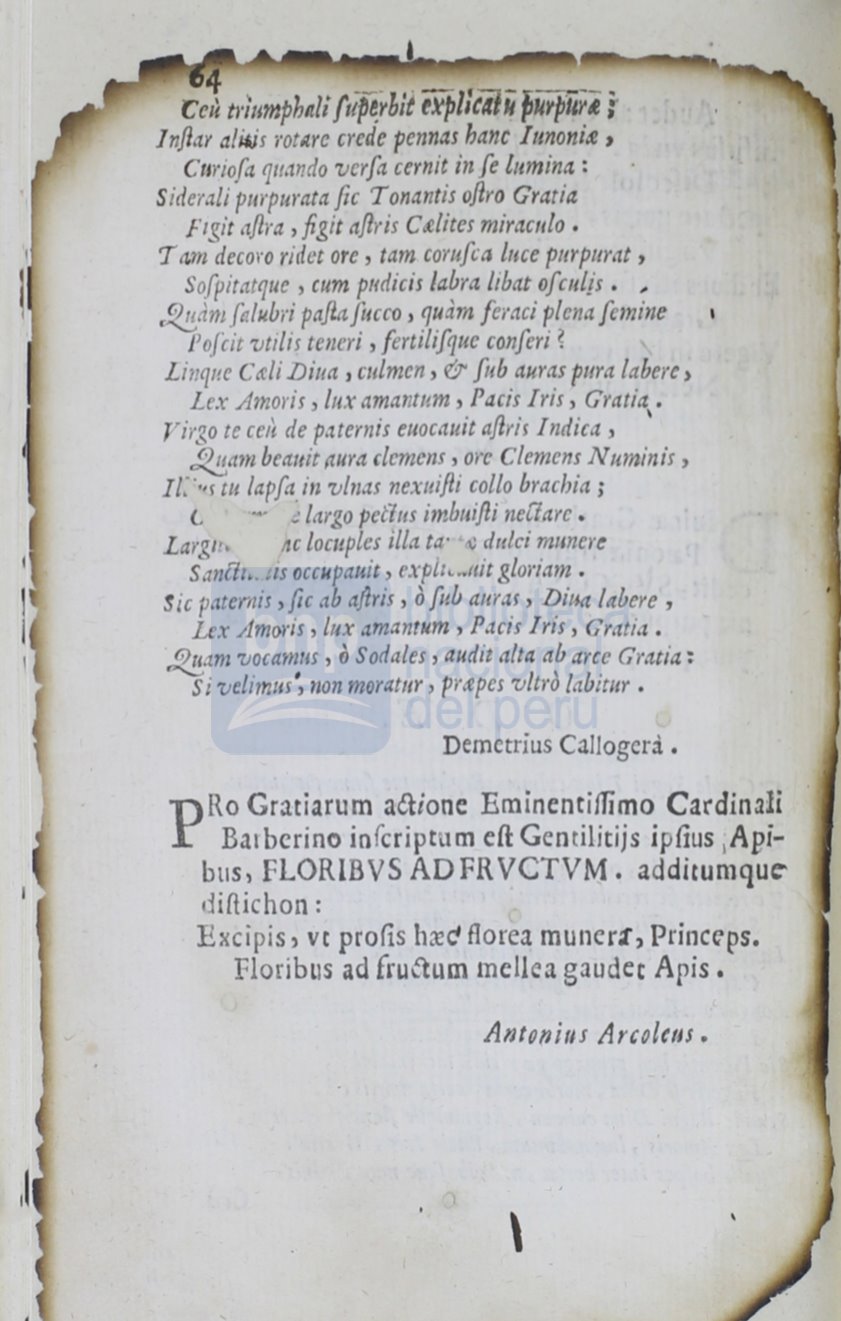 64
Ceù triumphali ſuperbit explicatu purpuræ ;
Inſtar alitis rotare crede pennas hanc Iunoniæ ,
Curioſa quando verſa cernit in ſe lumina :
Siderali purpurata ſic Tonantis oſtro Gratia
Figit aſtra , figit aſtris Cælites miraculo .
Tam decoro ridet ore , tam coruſca luce purpurat ,
Soſpitatque , cum pudicis labra libat oſculis .
Quàm ſalubri paſta ſucco , quàm feraci plena ſemine
Poſcit vtilis teneri , fertiliſque conſeri ?
Linque Cæli Diua , culmen , & ſub auras pura labere ,
Lex Amoris , lux amantum , Pacis Iris , Gratia .
Virgo te ceù de paternis euocauit aſtris Indica ,
Quam beauit aura clemens , ore Clemens Numinis ,
tu lapſa in vlnas nexuiſti collo brachia ;
largo pectus imbuiſti nectare .
locuples illa dulci munere
occupauit , gloriam .
Sic paternis , ſic ab aſtris , ò ſub auras , Diua labere ,
Lex Amoris , lux amantum , Pacis Iris , Gratia .
Quam vocamus , ò Sodales , audit alta ab arce Gratia :
Si velimus , non moratur , præpes vltrò labitur .
Demetrius Callogerà .
PRo Gratiarum actione Eminentiſſimo Cardinali
Barberino inſcriptum eſt Gentilitijs ipſius Api-
bus, FLORIBVS AD FRVCTVM . additumque
diſtichon :
Excipis, vt proſis hæc florea munera, Princeps.
Floribus ad fructum mellea gaudet Apis .
Antonius Arcoleus .
biblioteca
nacional
del perú